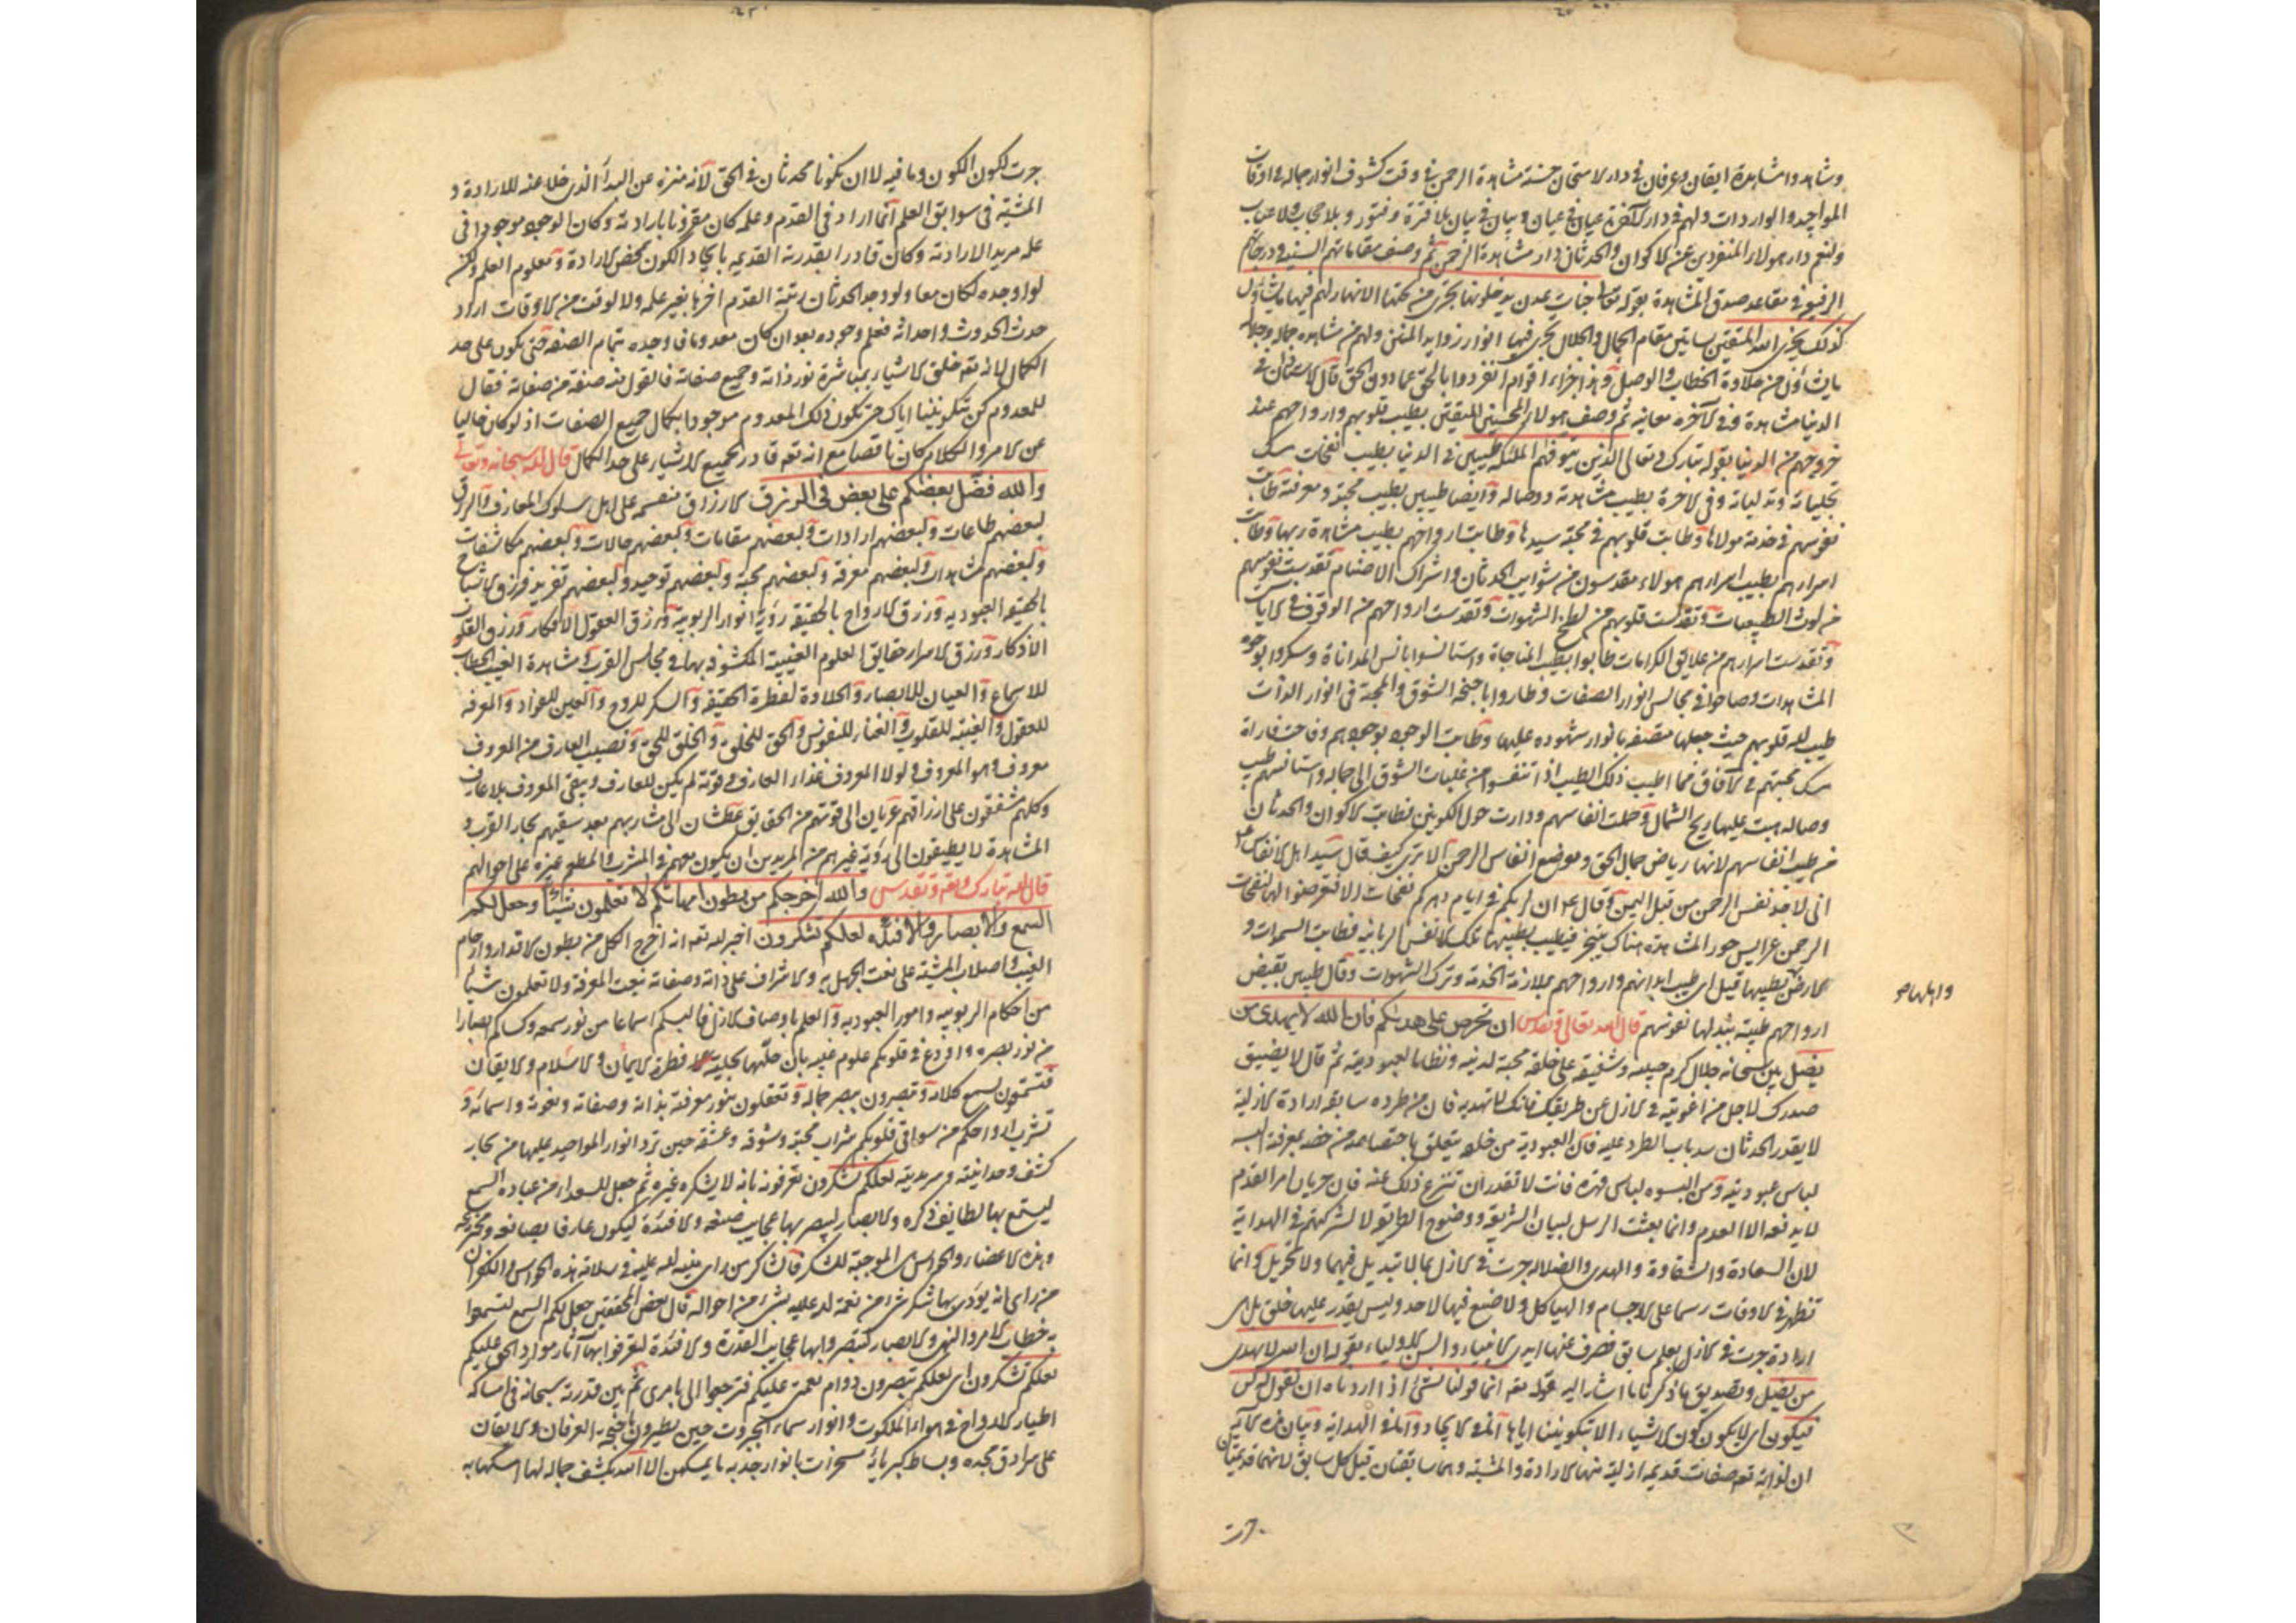 وشاهدوا مشاهدة ايقان وعرفان في دار الامتحان حسنة مشاهدة الرحمن في وقت كشوف انوار جماله في اوقات
المواجيد والواردات ولهم في دار الآخرة عيان في عيان وبيان في بيان بلا فترة وفتور وبلا حجاب ولا عتاب
ولنعم دار هؤلاء المنفردين عن الاكوان والحدثان دار مشاهدة الرحمن ثم وصف مقاماتهم السنية ودرجاتهم
الرفيع في مقاعد صدق المشاهدة بقوله تعالى جنات عدن يدخلونها تجري من تحتها الانهار لهم فيها ما يشاؤن
كذلك يجزي الله المتقين بساتين مقام الجمال والجلال تجري فيها انوار زوايد المنن ولهم من مشاهدة جماله وجلاله
ما يشاؤن من حلاوة الخطاب والوصل وهذا جزاء اقوام انفردوا بالحق عما دون الحق قال
الدنيا مشاهدة وفي الآخرة معاينة ثم وصف هؤلاء المحسنين المتقين بطيب قلوبهم وارواحهم عند
خروجهم من الدنيا بقوله تبارك وتعالى الذين يتوفهم الملئكة طيبين في الدنيا بطيب نفحات مسك
تجلياته وتدلياته وفي الآخرة بطيب مشاهدته ووصاله وايضا طيبين بطيب محبته ومعرفته طابت
نفوسهم في خدمة مولاها وطابت قلوبهم في محبة سيدها وطابت ارواحهم بطيب مشاهدة ربها وطابت
اسرارهم بطيب اسرارهم هؤلاء مقدسون من شوايب الحدثان واشراك الاصنام تقدست نفوسهم
من لوث الطبيعيات وتقدست قلوبهم من لطخ الشهوات وتقدست ارواحهم من الوقوف في الآيات
وتقدست اسرارهم من علايق الكرامات طابوا بطيب المناجاة واستانسوا بانس المداناة وسكروا بوجوه
المشاهدات وصاحوا في مجالس انوار الصفات وطاروا باجنحة الشوق والمحبة في انوار الذات
طيب الله قلوبهم حيث جعلها متصفة بانوار شهوده عليها وطابت الوجوه بوجوههم وفاحت فارة
مسك محبتهم في الآفاق فما اطيب ذلك الطيب اذا تنفسوا من غلبات الشوق الى جماله واستانسهم بطيب
وصاله هبت عليها ريح الشمال وحملت انفاسهم ودارت حول الكونين فطابت الاكوان والحدثان
من طيب انفاسهم لانها رياض جمال الحق وموضع انفاس الرحمن الا ترى كيف قال سيد اهل الانفاس
اني لاجد نفس الرحمن من قبل اليمن وقال ان لربكم في ايام دهركم نفحات الا فتعرضوا لها لنفحات
الرحمن عرايس حور المشاهدة هناك تتبختر فيطيب بطيبها تلك الانفس الربانية فطابت السموات و
الارض بطيبها قيل اي طيبة ابدانهم وارواحهم بملازمة الخدمة وترك الشهوات وقال طيبين بقبض
ارواحهم طيبة ببذلها نفوسهم قال الله تعالى وتقدس ان تحرص على هديهم فان الله لا يهدي من
يضل بين سبحانه جلال كرم حبيبه وشفقته على خلقه محبة لدينه ونظاما لعبوديته ثم قال لا يضيق
صدرك لاجل من اغويته في الازل عن طريقك فانك لا تهديه فان من طرده سابقة ارادة الازلية
لا يقدر الحدثان سد باب الطرد عليه فان العبودية من خلقه يتعلق باختصاصه من خصه بمعرفة البسه
لباس عبوديته ومن البسه لباس قهره فانت لا تقدر ان تنزع ذلك عنه فان جريان امر القدم
لا يدفعه الا القدم وانما بعثت الرسل لبيان الشريعة ووضوح الطريق لا لشركتهم في الهداية
لان السعادة والشقاوة والهدى والضلالة جرت في الازل بما لا تبديل فيهما ولا تحويل وانما
تظهر في الاوقات رسما على الاجسام والهياكل ولا صنع فيها لاحد وليس يقدر عليها خلق بل هي
ارادة جرت في الازل بعلم سابق فصرف عنها ايدي الانبياء والسن الاولياء بقوله ان الله لا يهدي
من يضل وتصديق ما ذكرنا ما اشار اليه بقوله تعه انما قولنا لشئ اذا اردناه ان نقول له كن
فيكون اي لا يكون كون الاشياء الا بتكويننا اياها
ان لله تعه صفات قديمة ازلية منها الارادة والمشية وهما سابقتان قبل كل سابق لانهما قديمتان
جرت
جرت لكون الكون وما فيه لا ان يكونا محدثان في الحق لانه منزه عن البدأ الذي خلا عنه للارادة و
المشية في سوابق العلم انما اراد في القدم وعلمه كان مقرونا بارادته وكان الوجود موجودا في
علمه مريد الارادته وكان قادرا بقدرته القديمة بايجاد الكون بمحض الارادة ومعلوم العلم ولكن
لو اوجده لكان معا ولو وجد الحدثان رتبة القدم اخرها بغير علمه ولا لوقت من الاوقات اراد
حدث الحدوث واحداثه فعلم وجوده بعد ان كان معدوما فاوجده بتمام الصفة حتى يكون على حد
الكمال لانه تعه خلق الاشياء بمباشرة نور ذاته وجميع صفاته فالقول منه صفة من صفاته فقال
للمعدوم كن بتكويننا اياك حتى يكون ذلك المعدوم موجودا بكمال جميع الصفات اذ لو كان خاليا
عن الامر والكلام كان ناقصا مع انه تعه قادر بجميع الاشياء على حد الكمال قال الله سبحانه وتعالى
والله فضل بعضكم على بعض في الرزق الارزاق منقسمة على اهل سلوك المعارف والرزق
لبعضهم طاعات ولبعضهم ارادات ولبعضهم مقامات ولبعضهم حالات ولبعضهم مكاشفات
ولبعضهم مشاهدات ولبعضهم معرفة ولبعضهم محبة ولبعضهم توحيد ولبعضهم تفريد فرزق الاشباح
بالحقيقة العبودية ورزق الارواح بالحقيقة رؤية انوار الربوبية ورزق العقول الافكار ورزق القلوب
الاذكار ورزق الاسرار حقايق العلوم الغيبية المكشوفة بها في مجالس القرب ومشاهدة الغيب الخطاب
للاسماع والعيان للابصار والحلاوة لفطرة الحقيقة والسكر للروح واليقين للفؤاد والمعرفة
للعقول والغيبة للقلوب والفناء للنفوس والحق للخلق والخلق للحق ونصيب العارف من المعروف
معروف هو المعروف ولولا المعروف غذاء العارف وقوته لم يكن للعارف ويبقى المعروف بلا عارف
وكلهم مشفقون على ارزاقهم عريان الى قوتهم من الحقايق عطشان الى مشاربهم بعد سقيهم بحار القرب و
المشاهدة لا يطيقون الى رؤية غيرهم من المريدين ان يكون معهم في المشرب والمطعم غيرة على احوالهم
قال الله تبارك وتعه وتقدس والله اخرجكم من بطون امهاتكم لا تعلمون شيئا وجعل لكم
السمع والابصار والافئدة لعلكم تشكرون اخبر الله تعه انه اخرج الكل من بطون الاقدار وارحام
الغيب واصلاب المشية على نعت الجهل به والاشراف على ذاته وصفاته بنعت المعرفة ولا تعلمون شيئا
من احكام الربوبية وامور العبودية والعلم باوصاف الازل فالبسكم اسماعا من نور سمعه وكساكم ابصارا
من نور بصره واودع في قلوبكم علوم غيبه فطرة الايمان والاسلام والايقان
فتسمعون بسمع كلامه وتبصرون ببصر جماله وتعقلون بنور معرفته بذاته وصفاته ونعوته واسمائه و
تشرب ارواحكم من سواقي قلوبكم شراب محبته وشوقه وعشقه حين ترد انوار المواجيد عليها من بحار
كشف وحدانيته وسرمديته لعلكم تشكرون تعرفونه بانه لا يشكره غيره ثم جعل للسعداء من عباده السمع
ليستمع بها لطايف ذكره والابصار ليبصر بها عجايب صنعه والافئدة ليكون عارفا بصانعه ومخترعه
وهذه الاعضاء والحواس الموجبة للشكر فالشاكر من راى منة الله عليه في سلامة هذه الحواس والكفران
من راى انه يؤدي بها شكر شئ من نعمة الله عليه بشئ من احواله قال بعض المحققين جعل لكم السمع لتسمعوا
به خطاب الامر والنهي والابصار لتبصروا بها عجايب القدرة والافئدة لتعرفوا بها آثار موارد الحق عليكم
لعلكم تشكرون اي لعلكم تبصرون دوام نعمتي عليكم فترجعوا الى بابي ثم بين قدرته سبحانه في امساكه
اطيار الارواح في هواء الملكوت وانوار سماء الجبروت حين يطيرون باجنحة العرفان والايقان
على سرادق مجده وبساط كبريائه مسخرات بانوار جذبه ما يمسكهن الا الله بكشف جماله لها امسكها به